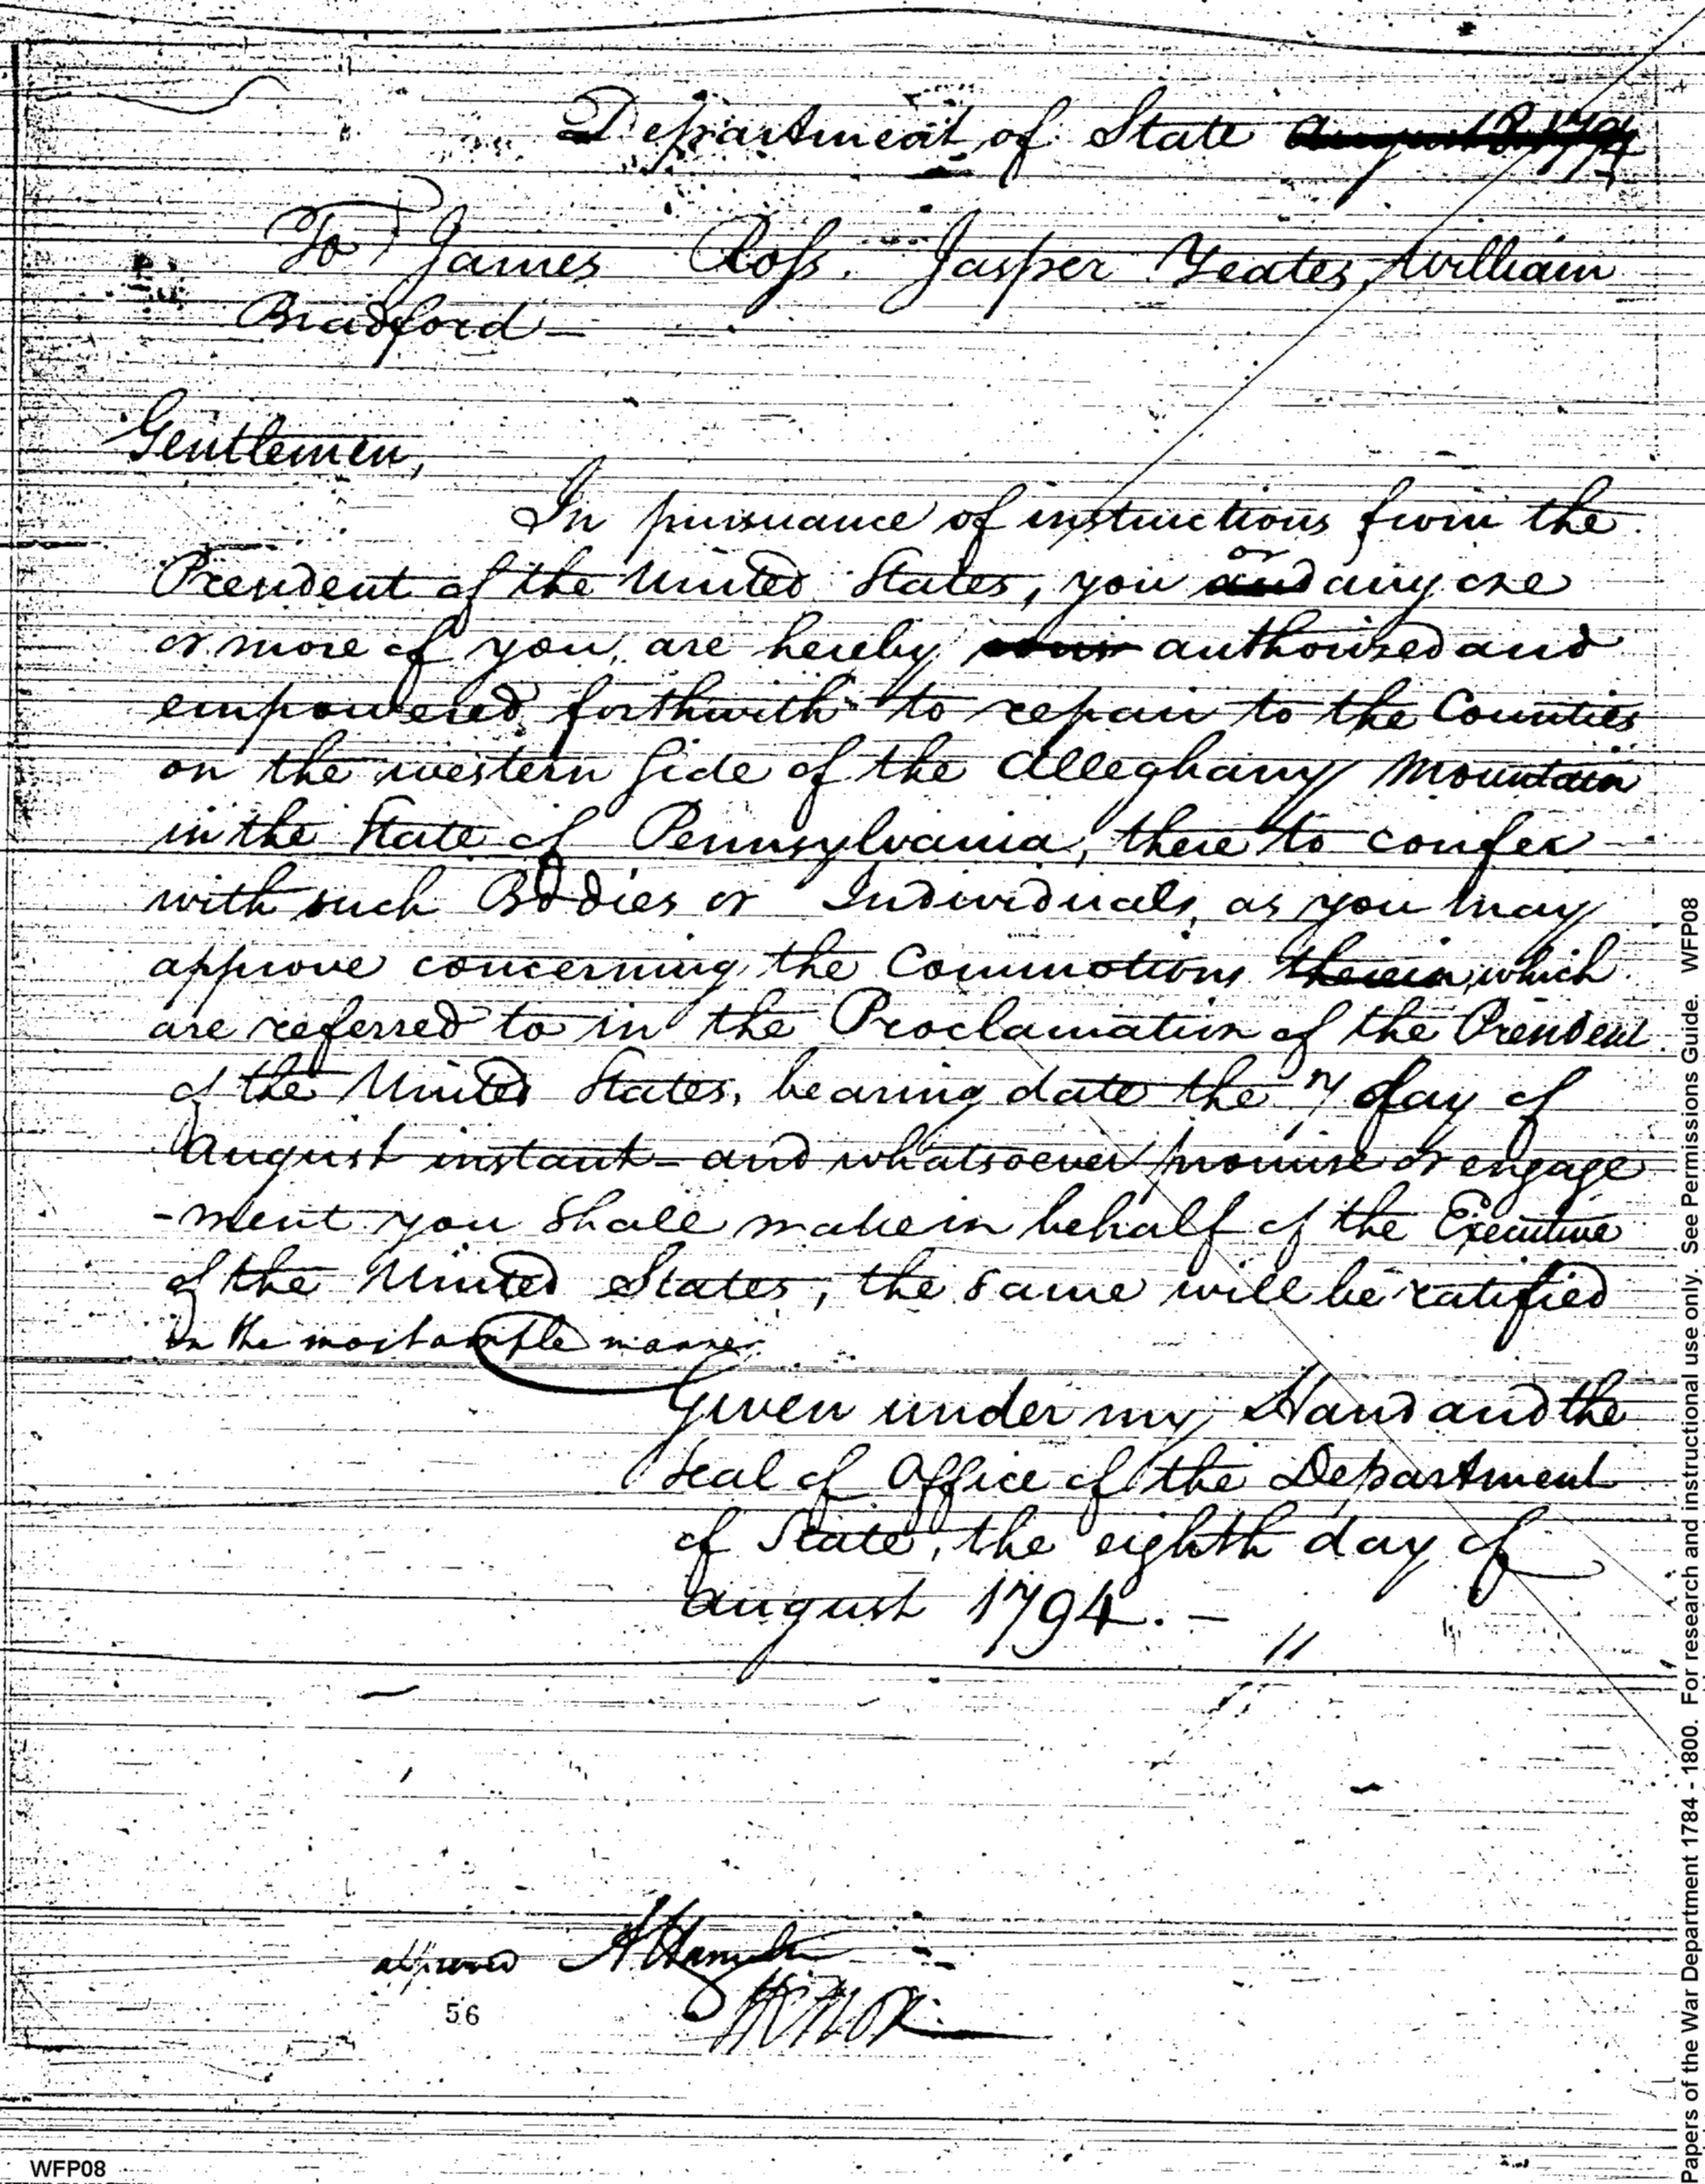 Department of State August 8. 1794
To James Ross. Jasper Yeates, William
Bradford —
Gentlemen,
In pursuance of instructions from the
or
President of the United States, you and any one
or more of you, are hereby authorized and
empowered forthwith to repair to the Counties
on the western Side of the Alleghany Mountain
in the State of Pennsylvania, there to confer
with such Bodies or Individuals, as you may
approve concerning the Commotions therein, which
are referred to in the Proclamation of the President
of the United States, bearing date the 7 day of
August instant — and whatsoever promise or engage
-ment you shall make in behalf of the Executive
of the United States, the same will be ratified
in the most ample manner.
Given under my Hand and the
Seal of Office of the Department
of State, the eighth day of
August 1794. —
approved A Hamilton
H Knox
56
WFP08
Papers of the War Department 1784 - 1800. For research and instructional use only. See Permissions Guide. WFP08